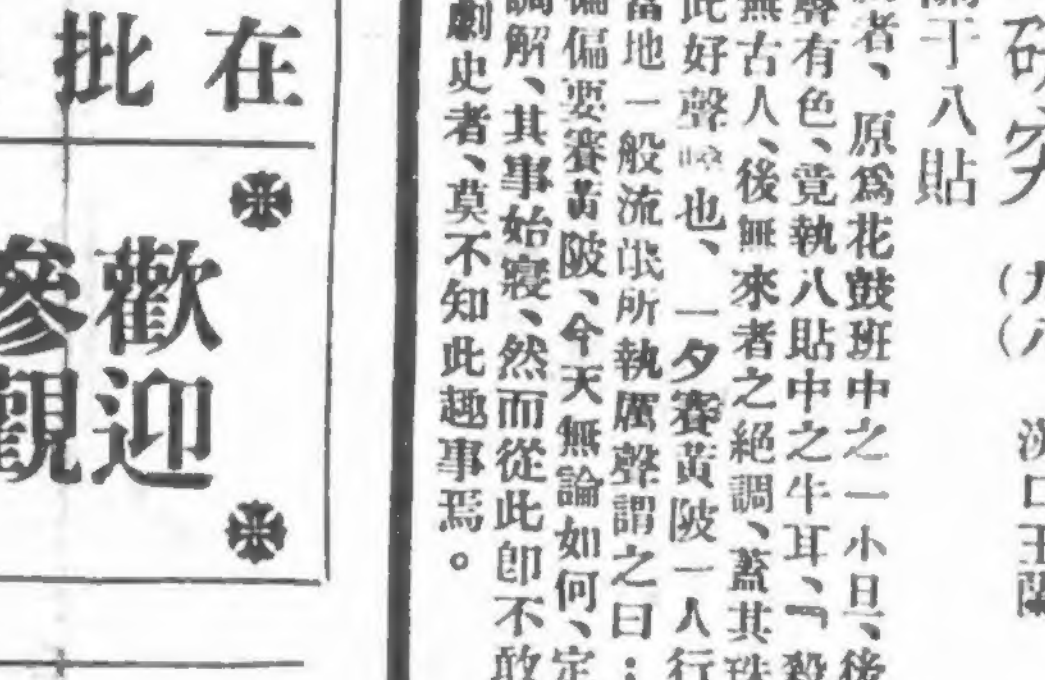 研究
漢口王
于八貼
者、原爲花鼓班中之一小旦、後
聲有色、竟執八貼中之牛耳、「殺
無古人、後無來者之絕調、蓋其珠
此好聲 也、一夕賽黃陂一人行
當地一般流氓所執厲聲謂之曰：
偏偏要賽黃陂、今天無論如何、定
調解、其事始寢、然而從此卽不敢
劇史者、莫不知此趣事焉。
在
批
歡迎
參觀